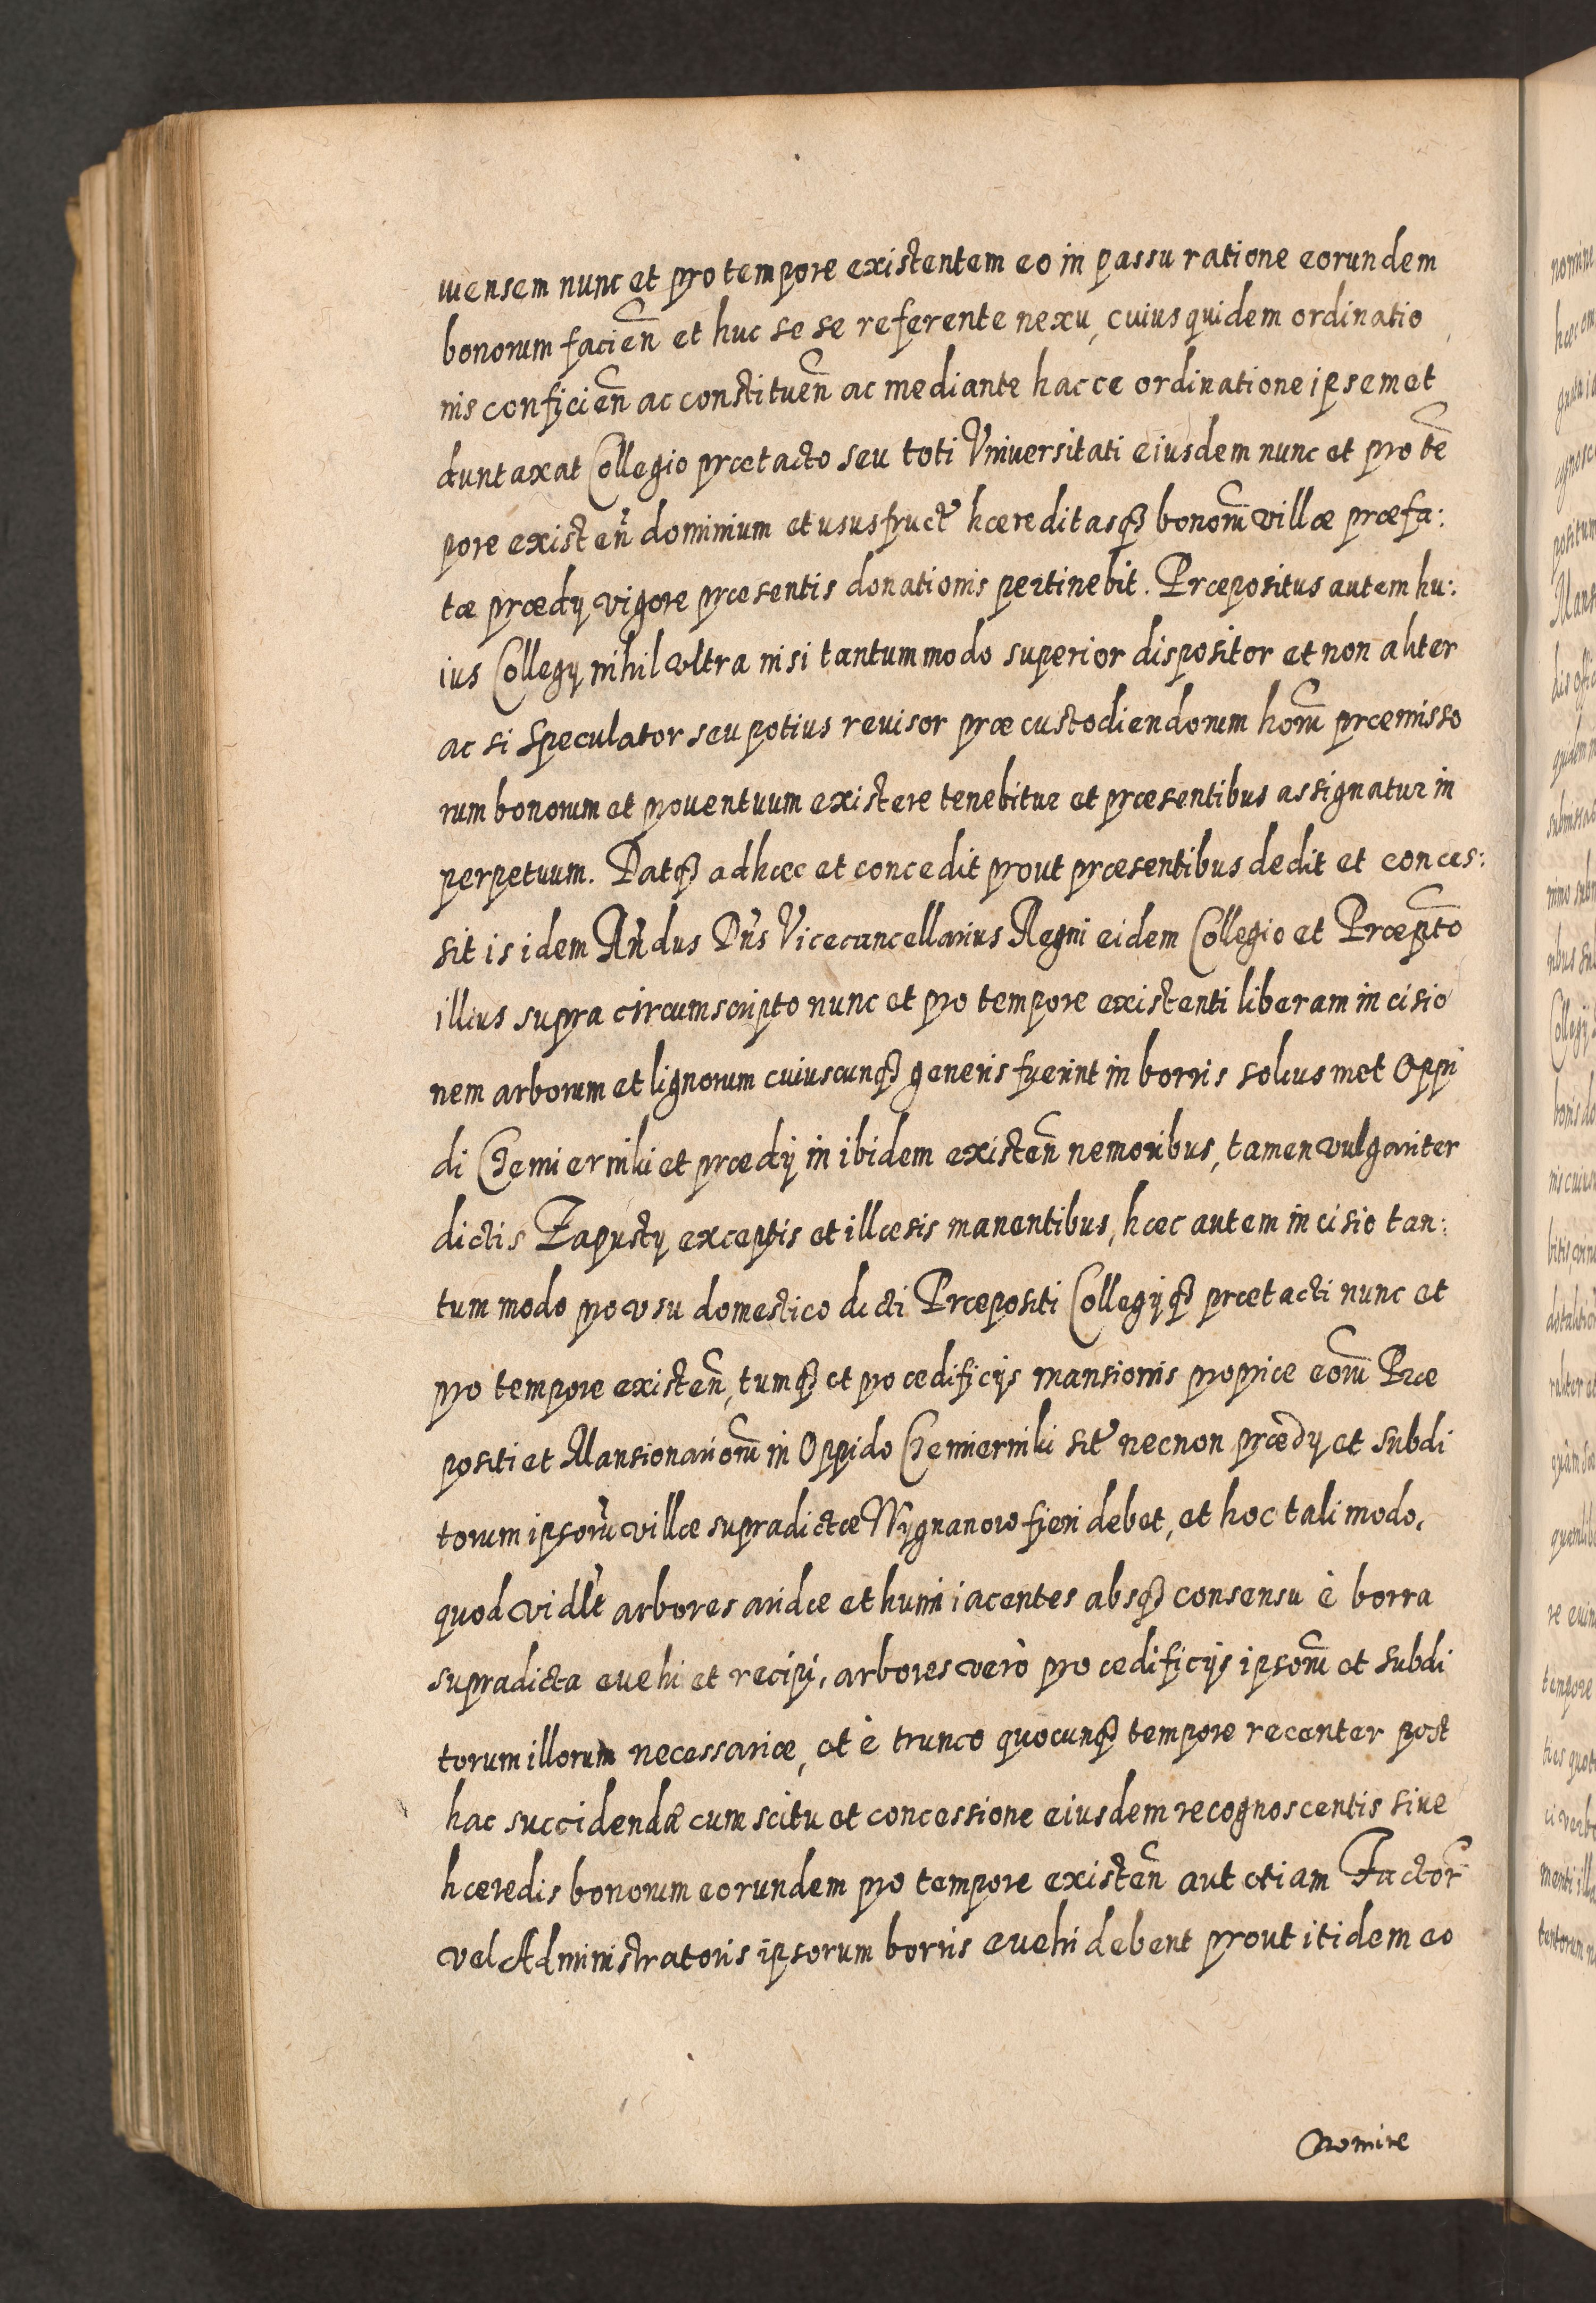 uiensem nunc et pro tempore existentem eo in passu ratione eorundem
bonorum facien̄ et huc se se referente nexu, cuius quidem ordinatio
nis conficien̄ ac constituen̄ ac mediante hacce ordinatione ipsemet
duntaxat Collegio prætacto seu toti Vniuersitati eiusdem nunc et pro tē
pore existen̄ dominium et ususfruct9 hæreditasq3 bonorū villæ præfa:
tæ prædÿ vigore præsentis donationis pertinebit. Præpositus autem hu:
ius Collegÿ nihil vltra nisi tantummodo superior dispositor et non aliter
ac si speculator seu potius reuisor præcustodiendorum horū præmisso
rum bonorum et prouentuum existere tenebitur et præsentibus assignatur in
perpetuum. Datq3 adhæc et concedit prout præsentibus dedit et conces:
sit is idem Rn̄dus Dn̄s Vicecancellarius Regni eidem Collegio et Præpto
illius supra circumscripto nunc et pro tempore existenti liberam incisio
nem arborum et lignorum cuiuscunq3 generis fuerint in borris soliusmet Oppi
di Czemierniki et prædÿ inibidem existen̄ nemoribus, tamen vulgariter
dictis Zapusty exceptis et illæsis manentibus, hæc autem incisio tan:
tummodo pro vsu domestico dicti Præpositi Collegÿq3 prætacti nunc et
pro tempore existen̄, tumq3 et pro ædificijs mansionis propriæ eorū Præ
positi et Mansionariorū in Oppido Czemierniki sit9 necnon prædÿ et subdi
torum ipsorū villæ supradictæ Wygnanow fieri debet, et hoc tali modo,
quod vidl̄t arbores aridæ et humi iacentes absq3 consensu è borra
supradicta euehi et recipi, arbores verò pro ædificijs ipsorū et subdi
torum illorum necessariæ, et è trunco quocunq3 tempore recenter post
hac succidendæ cum scitu et concessione eiusdem recognoscentis siue
hæredis bonorum eorundem pro tempore existen̄ aut etiam Factor̄
vel Administratoris ipsorum borris euehi debent prout itidem eo
nomine